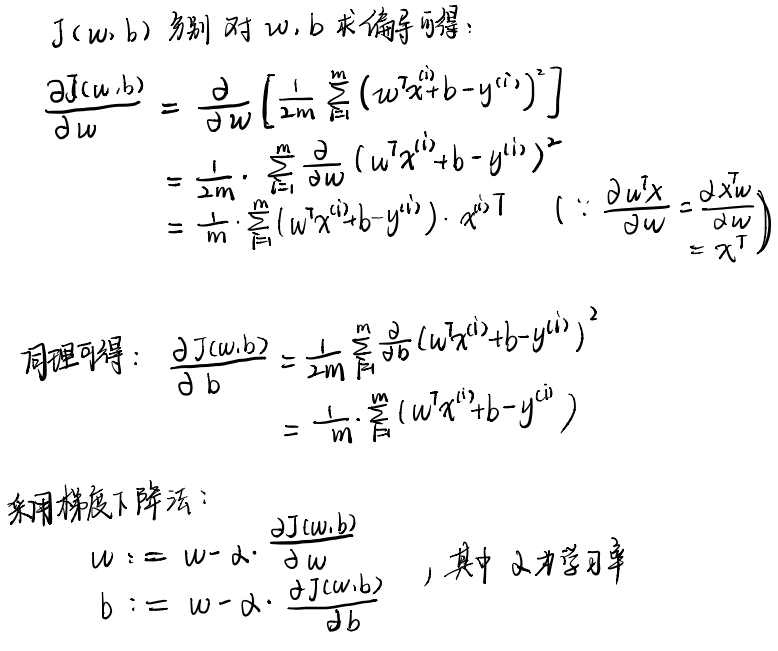 J(w,b) 分别对 w,b 求偏导可得:
∂J(w,b)/∂w = ∂/∂w [1/2m ∑_{i=1}^{m} (w^T x^{(i)} + b - y^{(i)})^2]
= 1/2m · ∑_{i=1}^{m} ∂/∂w (w^T x^{(i)} + b - y^{(i)})^2
= 1/m · ∑_{i=1}^{m} (w^T x^{(i)} + b - y^{(i)}) · x^{(i)T} (∵ ∂w^T x/∂w = ∂x^T w/∂w
= x^T)
同理可得: ∂J(w,b)/∂b = 1/2m ∑_{i=1}^{m} ∂/∂b (w^T x^{(i)} + b - y^{(i)})^2
= 1/m · ∑_{i=1}^{m} (w^T x^{(i)} + b - y^{(i)})
采用梯度下降法:
w := w - α · ∂J(w,b)/∂w
b := w - α · ∂J(w,b)/∂b , 其中 α为学习率